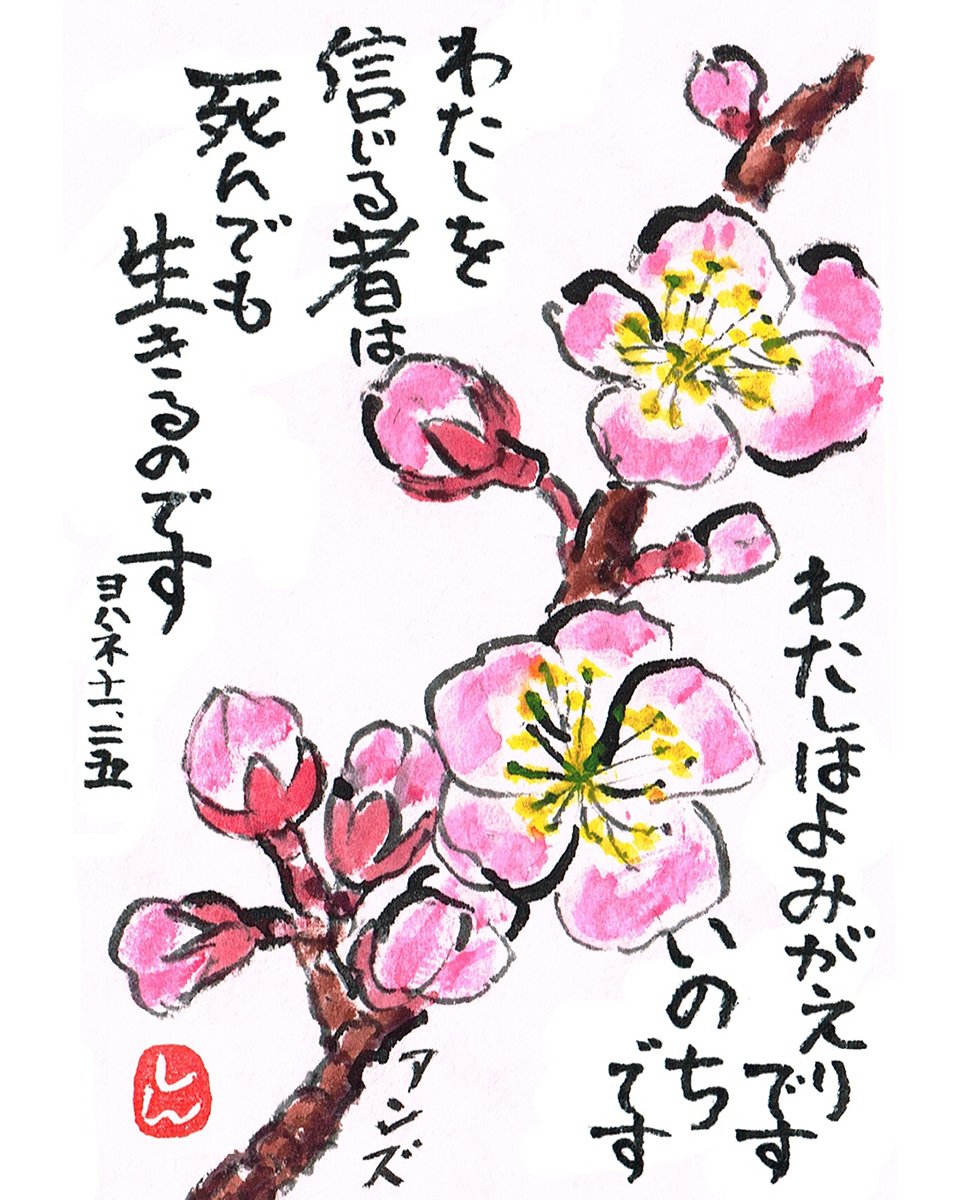 わたしはよみがえり
です
いのち
です
わたしを
信じる者は
死んでも
生きるのです
ヨハネ十一、二五
アンズ
しん